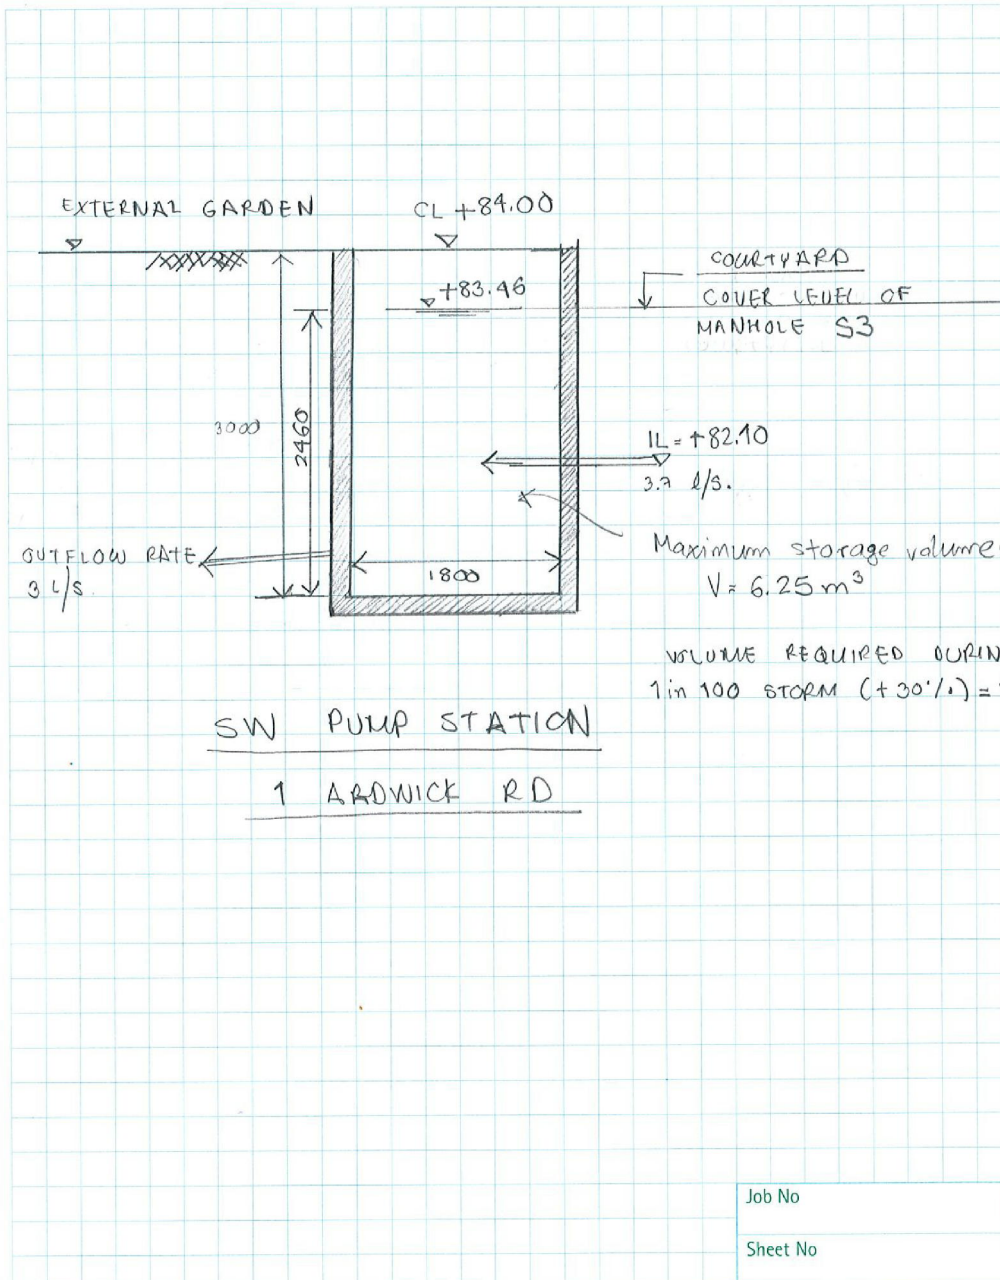 EXTERNAL GARDEN
CL +84.00
+83.46
COURTYARD
COVER LEVEL OF
MANHOLE S3
3000
2460
IL = +82.10
3.7 l/s.
OUTFLOW RATE
3 L/S
1800
Maximum storage volume
V = 6.25 m³
VOLUME REQUIRED DURIN
1 in 100 STORM (+30%) =
SW PUMP STATION
1 ARDWICK RD
Job No
Sheet No